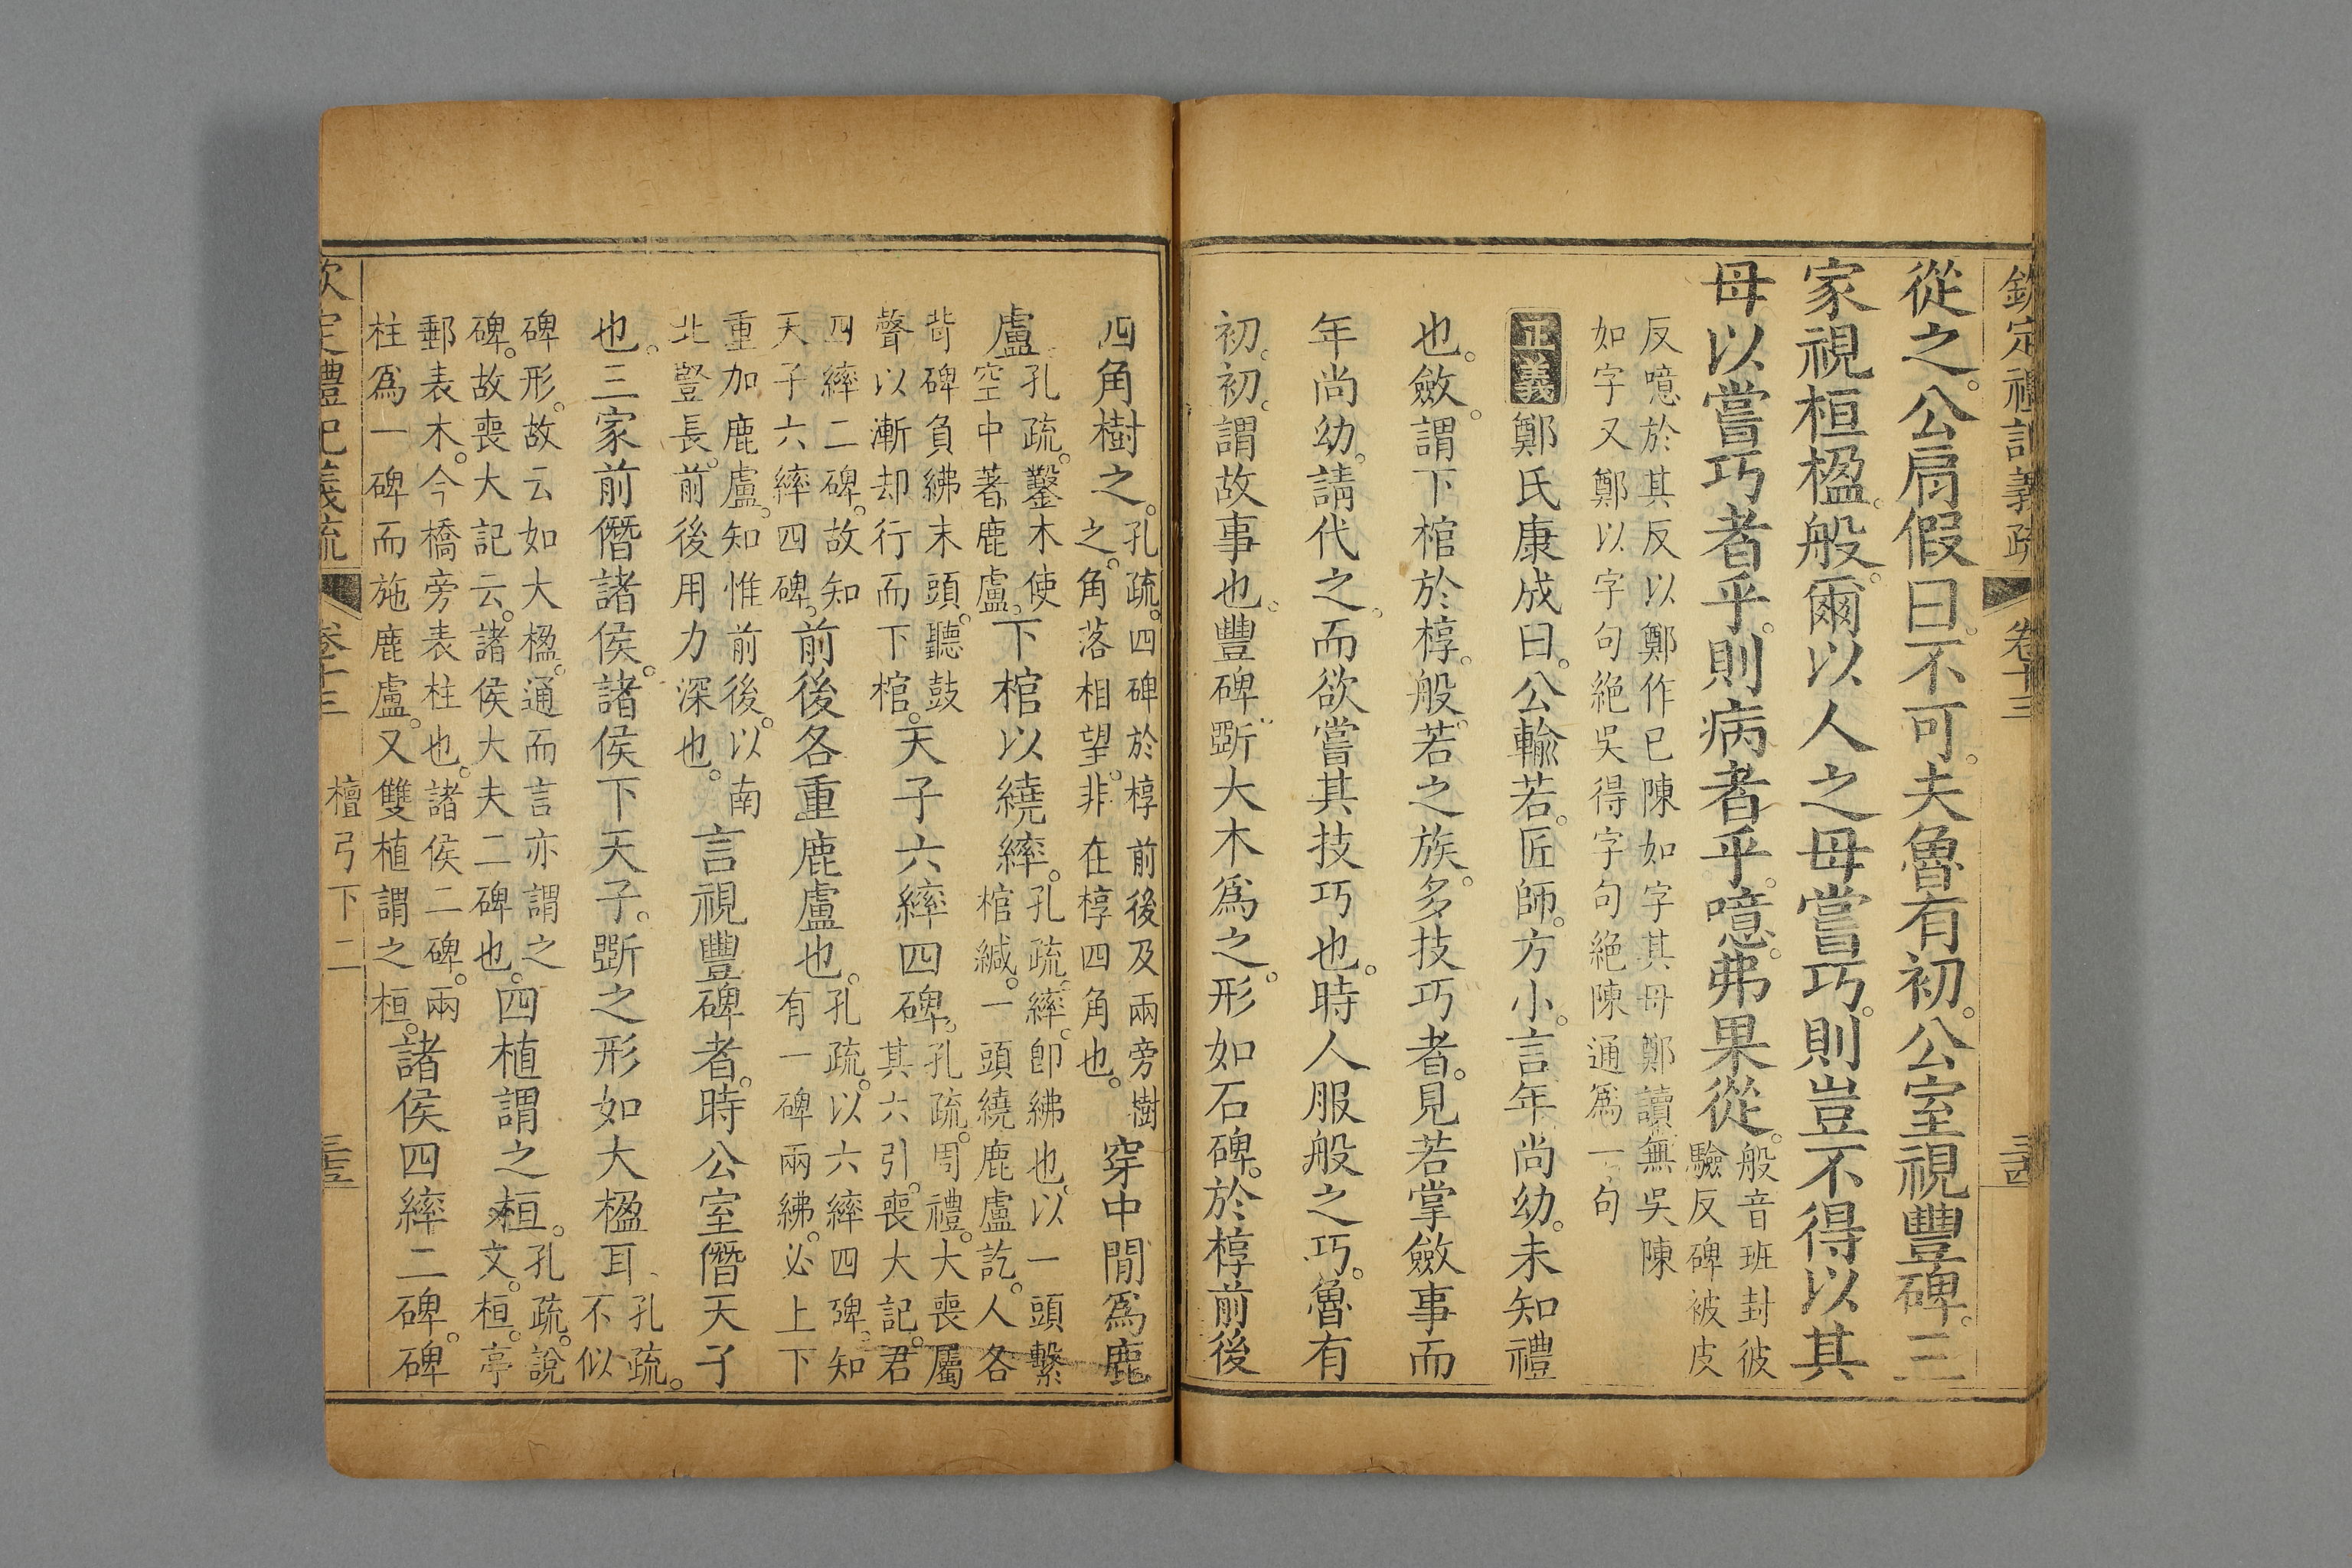 欽定禮記義疏 卷十三 三四
從之。公肩假曰。不可。夫魯有初。公室視豐碑。三
家視桓楹。般。爾以人之母嘗巧。則豈不得以其
母以嘗巧者乎。則病者乎。噫。弗果從。
般音班封彼
驗反碑被皮
反噫於其反以鄭作已陳如字其毋鄭讀無吳陳
如字又鄭以字句絶吳得字句絶陳通爲一句
正義 鄭氏康成曰。公輸若。匠師。方小。言年尚幼。未知禮
也。斂。謂下棺於椁。般。若之族。多技巧者。見若掌斂事而
年尚幼。請代之。而欲嘗其技巧也。時人服般之巧。魯有
初。初。謂故事也。豐碑。斲大木爲之。形如石碑。於椁前後
四角樹之。
孔疏。四碑於椁前後及兩旁樹
之。角落相望。非在椁四角也。
穿中閒爲鹿
盧。
孔疏。鑿木使
空中著鹿盧。
下棺以繞繂。
孔疏。繂。卽紼也。以一頭繫
棺緘。一頭繞鹿盧訖。人各
背碑負紼末頭。聽鼓
聲以漸却行而下棺。
天子六繂四碑。
孔疏。周禮。大喪屬
其六引。喪大記。君
四繂二碑。故知
天子六繂四碑。
前後各重鹿盧也。
孔疏。以六繂四碑。知
有一碑兩紼。必上下
重加鹿盧。知惟前後。以南
北豎長。前後用力深也。
言視豐碑者。時公室僭天子
也。三家前僭諸侯。諸侯下天子。斲之形如大楹耳、
孔疏。
不似
碑形。故云如大楹。通而言亦謂之
碑。故喪大記云。諸侯大夫二碑也。
四植謂之桓。
孔疏。說
文。桓。亭
郵表木。今橋旁表柱也。諸侯二碑。兩
柱爲一碑而施鹿盧。又雙植謂之桓。
諸侯四繂二碑。碑
欽定禮記義疏 卷十三 檀弓下二 三五